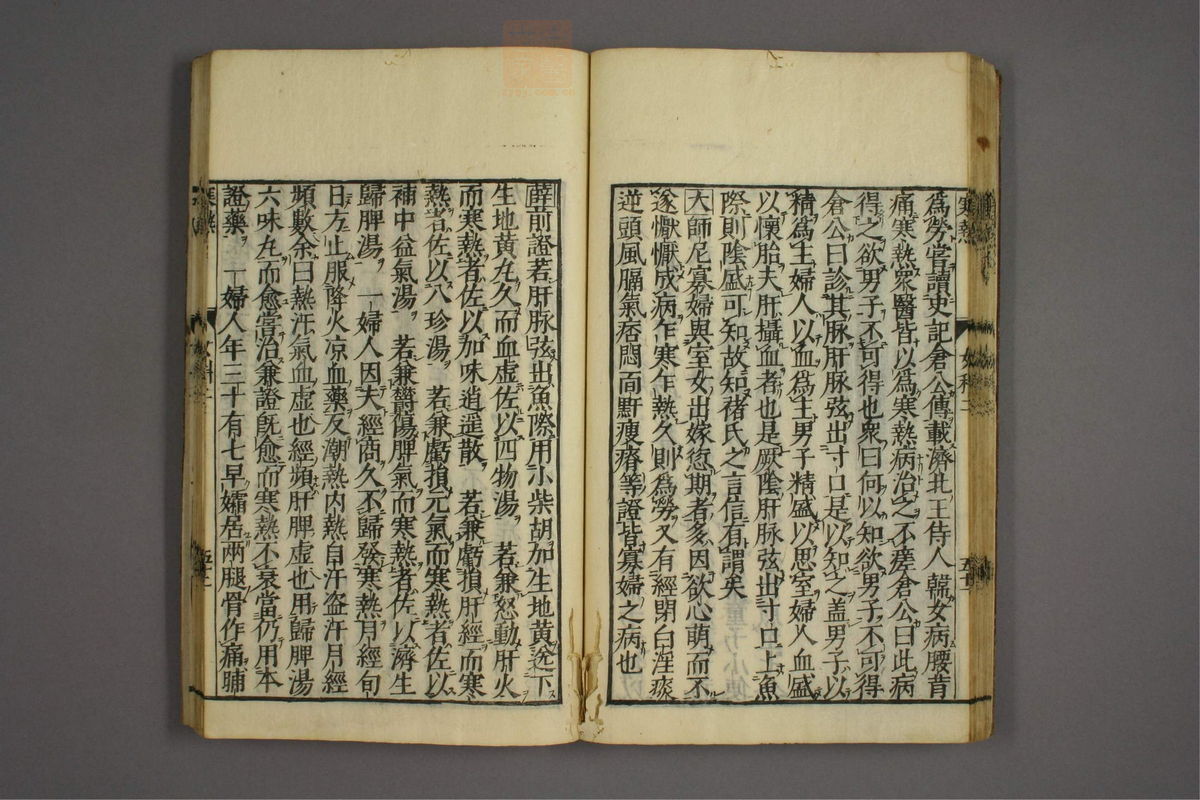 為勞嘗讀史記倉公傳載濟北王侍人韓女病腰背
痛寒熱眾醫皆以為寒熱病治之不瘥倉公曰此病
得之欲男子不可得也眾曰何以知欲男子不可得
倉公曰診其脉肝脉弦出寸口是以知之盖男子以
精為主婦人以血為主男子精盛以思室婦人血盛
以懷胎夫肝攝血者也是厥陰肝脉弦出寸口上魚
際則陰盛可知故知褚氏之言信有謂矣
大師尼寡婦與室女出嫁愆期者多因欲心萌而不
遂懨懨成病乍寒乍熱久則為勞又有經閉白淫痰
逆頭風膈氣痞悶面䵟瘦瘠等證皆寡婦之病也
寒熱
女科二
五十一
薛前證若肝脉弦出魚際用小柴胡加生地黄送下
生地黄丸久而血虛佐以四物湯 若兼怒動肝火
而寒熱者佐以加味逍遥散 若兼虧損肝經而寒
熱者佐以八珍湯 若兼虧損元氣而寒熱者佐以
補中益氣湯 若兼欝傷脾氣而寒熱者佐以濟生
歸脾湯 一婦人因夫經商久不歸發寒熱月經旬
日方止服降火凉血藥反潮熱内熱自汗盜汗月經
頻數余曰熱汗氣血虛也經頻肝脾虛也用歸脾湯
六味丸而愈嘗治兼證既愈而寒熱不衰當仍用本
證藥 一婦人年三十有七早孀居兩腿骨作痛晡